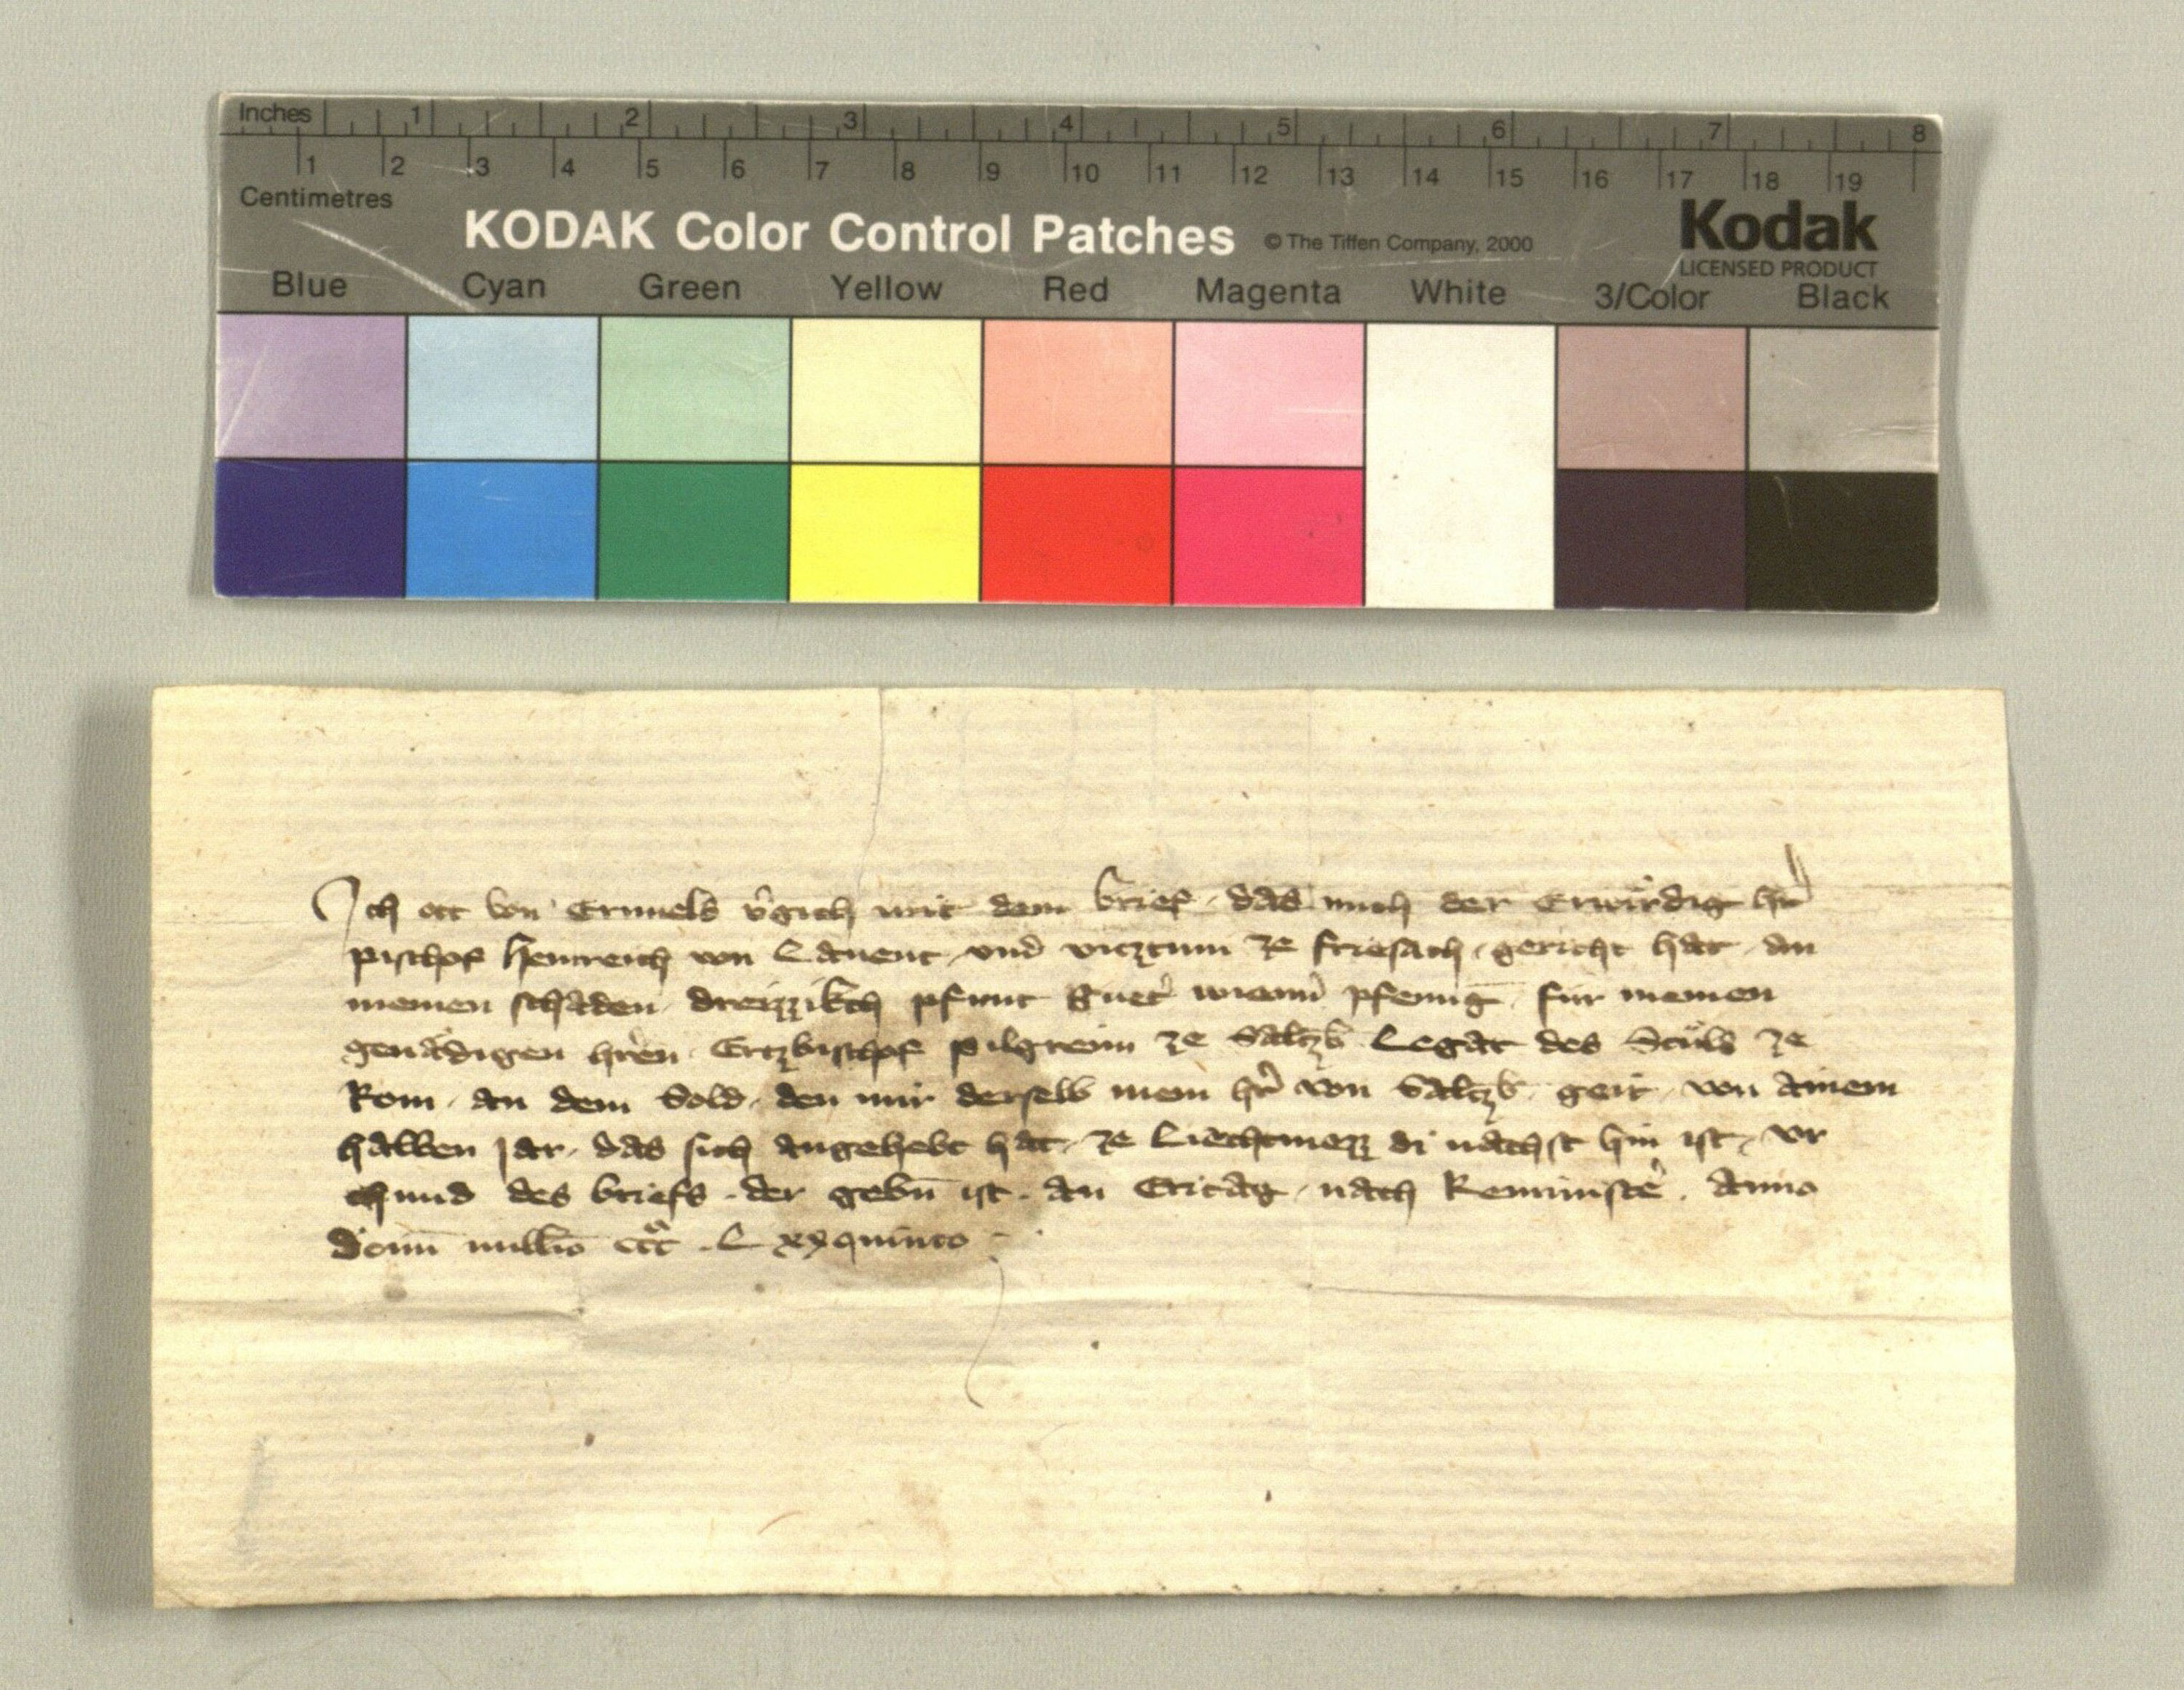 Inches 1 2 3 4 5 6 7 8
1 2 3 4 5 6 7 8 9 10 11 12 13 14 15 16 17 18 19
Centimetres
KODAK Color Control Patches © The Tiffen Company, 2000 Kodak
LICENSED PRODUCT
Blue Cyan Green Yellow Red Magenta White 3/Color Black
Ich ott von Ernuels v̂gich mit dem brief · das mich der Erwirdig h̄r
pischof Heinreich von Lauent · vnd vicztum ze friesach · gericht hat · an
meinen schaden · dreizzikch pfunt guet̂ wienn̂ pfenn̄ig · für meinen
genädigen hr̂en · Ertzbischof pilgreim ze Saltzb̄ Legat des Stůls ze
Rom · an dem Sold · den mir derselb mein hr̂ von Saltzb̄ · geit · von ainem
halben jar · das sich angehebt hat · ze Liechtmezz di nachst hin ist · vr
chund des briefs · der geb̄n ist · an Eritag · nach Reminiscê · Anno
Domī millīo ccc̊ · Lxxquinto